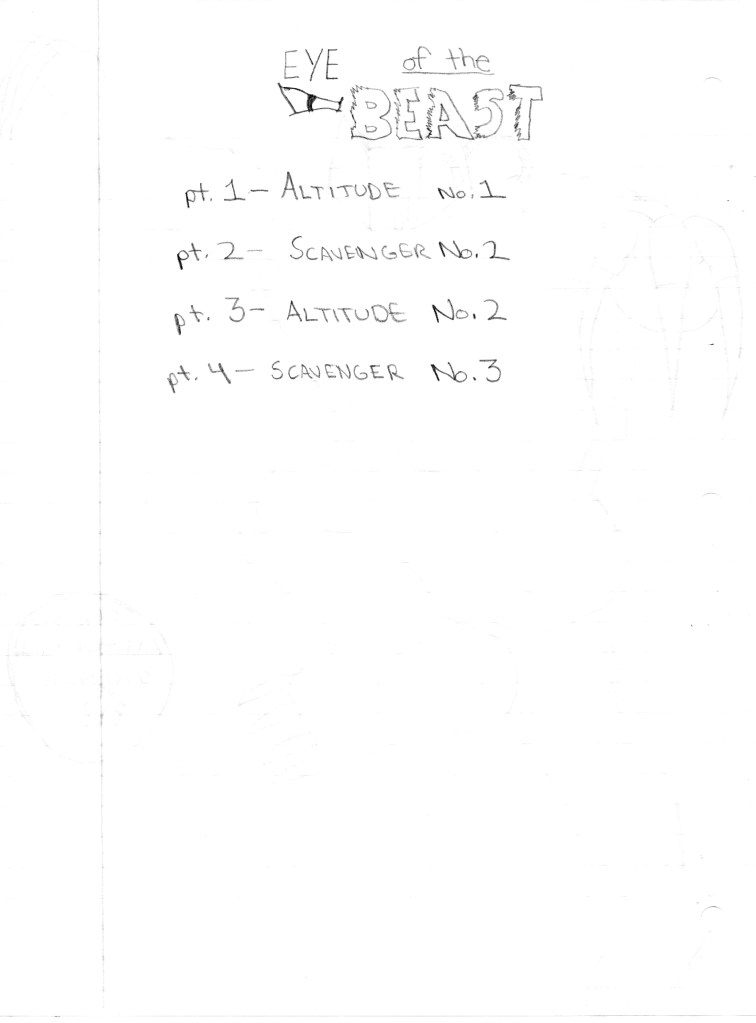 EYE of the
BEAST
pt. 1 - ALTITUDE No. 1
pt. 2 - SCAVENGER No. 2
pt. 3 - ALTITUDE No. 2
pt. 4 - SCAVENGER No. 3